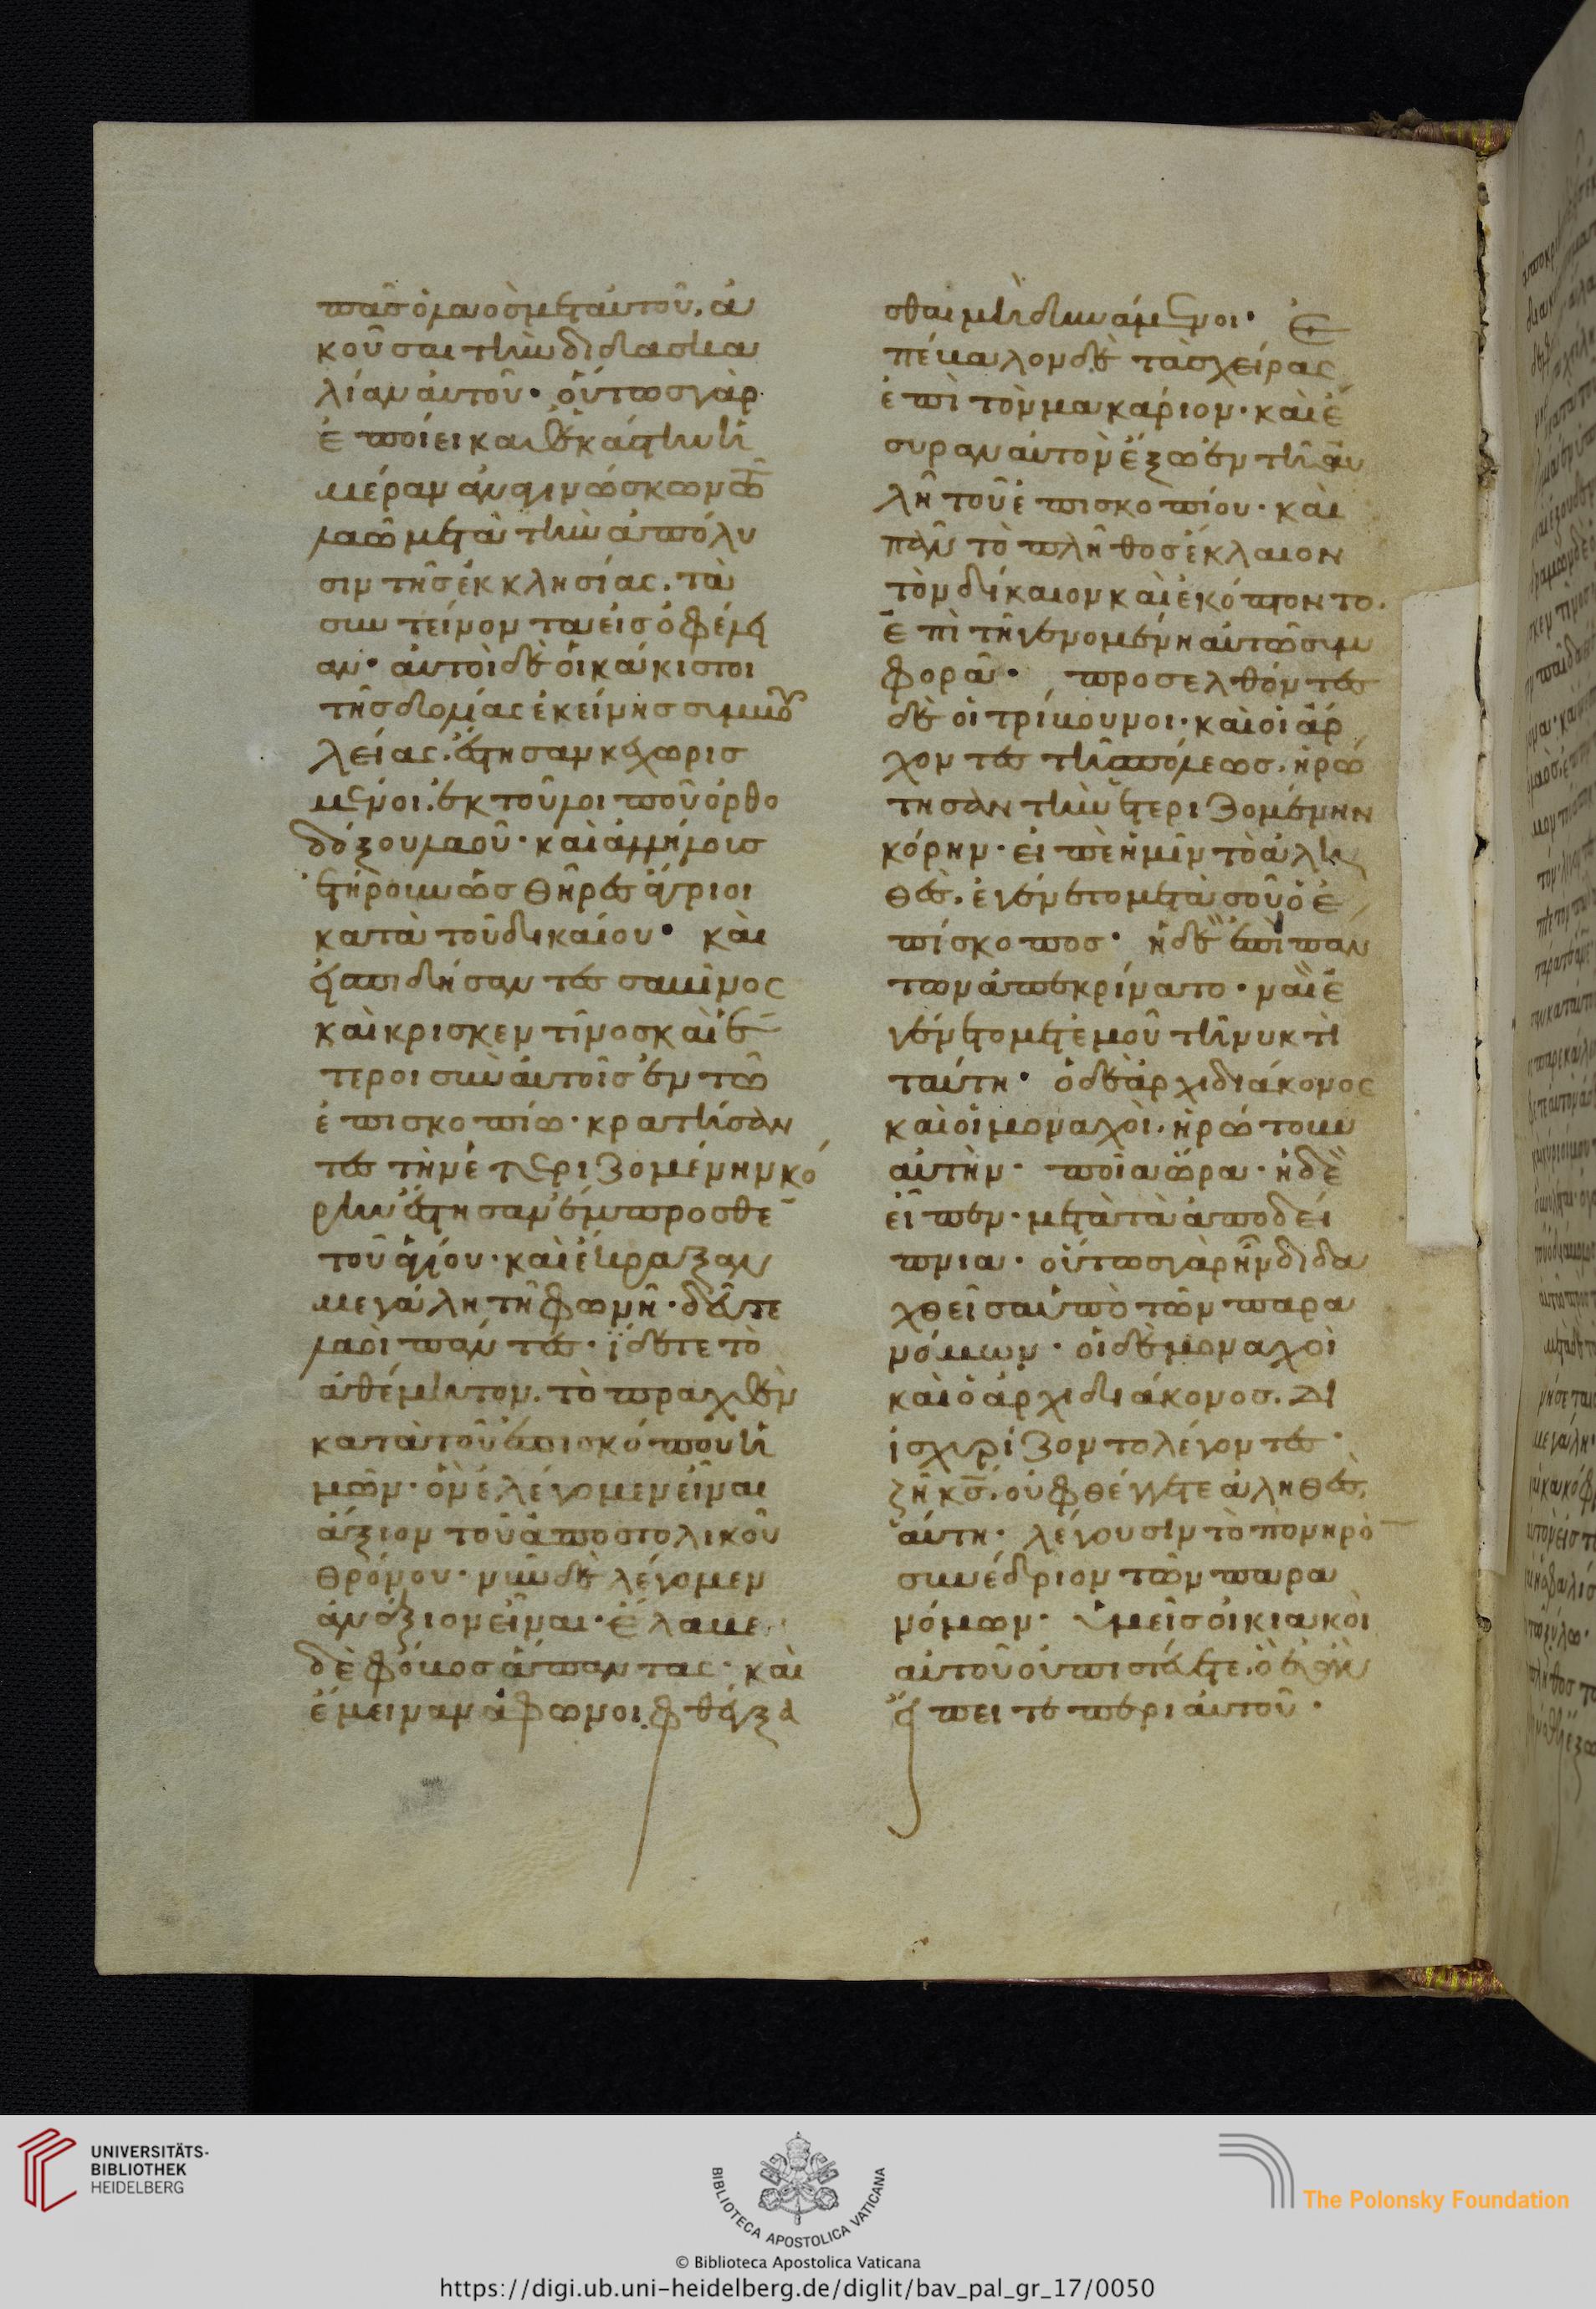 πᾶσ ὁ λαὸσ μετ αυτοῦ. ἀ
κοῦσαι τὴν διδασκα
λίαν ἀυτοῦ· ὅυτωσ γὰρ
ἐποίει καθεκάστην ἡ
μέραν ἀναγινώσκων τῶ
λαῶ μετὰ τὴν ἀπόλυ
σιν τῆσ ἐκκλησίας. τὰ
συντείνοντα εἰσ ὀφέλει
αν· ἀυτοὶ δὲ ὁι κάκιστοι
τῆσ δολίας ἐκείνησ συμβου
λείας. ἔστησαν κεχωρισ
μένοι. ἐκ τοῦ λοιποῦ ὀρθο
δόξου λαοῦ· καὶ ἀλλήλοισ
ἐτήρουν ὡσ θῆρεσ ἄγριοι
κατὰ τοῦ δικαίου· καὶ
εἰσπιδήσαντεσ σαβῖνος
καὶ κρισκεντῖνοσ καὶ ἕ
τεροι σὺν ἀυτοῖσ ἐν τῶ
ἐπισκοπίω· κρατήσαν
τεσ τὴν ἑτεριζομένην κό
ρην ἔστησαν ἔμπροσθε
τοῦ ἁγίου· καὶ ἔκραξαν
μεγάλη τῆ φωνῆ· δεῦτε
λαοὶ πάντεσ· ἴδετε τὸ
ἀθέμητον. τὸ πραχθὲν
κατὰ τοῦ ἐπισκόπου ἡ
μῶν· ὃν ἐλέγομεν εἶναι
ἄξιον τοῦ ἀποστολικοῦ
θρόνου· νῦν δὲ λέγομεν
ἀνάξιον εἶναι· ἔλαβε
δὲ φόβοσ ἅπαντας· καὶ
ἔμειναν ἄφωνοι φθέγξα
σθαι μὴ δυνάμενοι· Ἐ
πέβαλον δὲ τὰσ χείρας
ἐπὶ τὸν μακάριον· καὶ ἔ
συραν ἀυτὸν ἔξω ἐν τῆ ἀυ
λῆ τοῦ ἐπισκοπίου· καὶ
πᾶν τὸ πλῆθοσ ἔκλαιον
τὸν δίκαιον καὶ ἐκόπτοντο.
ἐπὶ τῆ γενομένη ἀυτῶ συμ
φορᾶ· προσελθόντεσ
δὲ οἱ τρίβουνοι· καὶ οἱ ἄρ
χοντεσ τῆσ πόλεωσ. ἠρώ
τησαν τὴν ἑτεριζομένην
κόρην· εἰπὲ ἡμῖν τὸ ἀλη
θέσ. ἐγένετο μετὰ σοῦ ὁ ἐ
πίσκοπος· ἡ δὲ ἐπὶ παν
των ἀπεκρίνατο· ναὶ ἐ
γένετο μετ ἐμοῦ τῆ νυκτὶ
ταύτη· ὁ δὲ ἀρχιδιάκονος
καὶ οἱ μοναχοὶ. ἠρώτουν
αυτὴν· ποῖα ὥρα· ἡ δὲ
εἶπεν· μετὰ τὰ ἀποδεί
πνια· οὕτωσ γὰρ ἦν διδα
χθεῖσα ὑπὸ τῶν παρα
νόμων· οἱ δὲ μοναχοὶ
καὶ ὁ ἀρχιδιάκονοσ. δι
ισχυρίζοντο λέγοντεσ·
ζῆ κσ. οὐ φθέγγεται ἀληθὲσ
ἅυτη· λέγουσιν τὸ πονηρὸ
συνέδριον τῶν παρα
νόμων· ὑμεῖσ οἰκιακοὶ
αυτοῦ οὐ πιστεύετε. ὃ ἐὰν
εἴπειτε περὶ ἀυτοῦ·
UNIVERSITÄTS-
BIBLIOTHEK
HEIDELBERG
BIBLIOTECA APOSTOLICA VATICANA
The Polonsky Foundation
© Biblioteca Apostolica Vaticana
https://digi.ub.uni-heidelberg.de/diglit/bav_pal_gr_17/0050